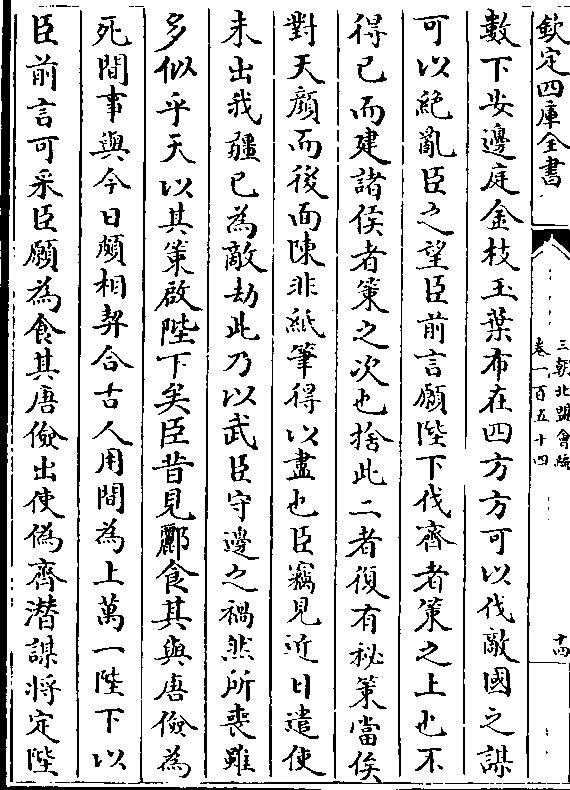 欽定四庫全書
三朝北盟會編
卷一百五十四
十四
數下安邊庭金枝玉葉布在四方方可以伐敵國之謀
可以絶亂臣之望臣前言願陛下伐齊者策之上也不
得已而建諸侯者策之次也捨此二者復有秘策當俟
對天顔而後面陳非紙筆得以盡也臣竊見近日遣使
未出我疆已為敵劫此乃以武臣守邊之禍然所喪雖
多似乎天以其策啟陛下矣臣昔見酈食其與唐儉為
死間事與今日頗相契合古人用間為上萬一陛下以
臣前言可采臣願為食其唐儉出使偽齊潜謀將定陛